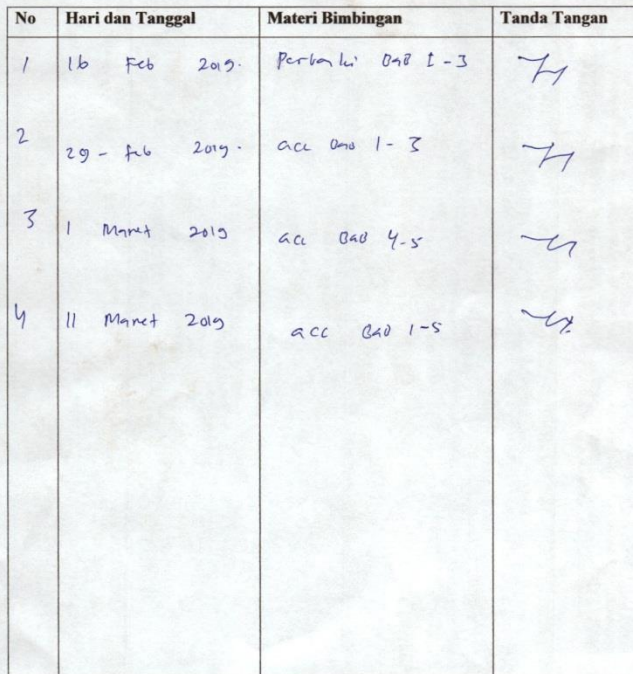 No Hari dan Tanggal Materi Bimbingan Tanda Tangan
1 16 Feb 2019. Perbaiki BAB I - 3
2 29 - feb 2019. acc Bab 1 - 3
3 1 Maret 2019 acc BAB 4-5
4 11 Maret 2019 acc BAB 1-5